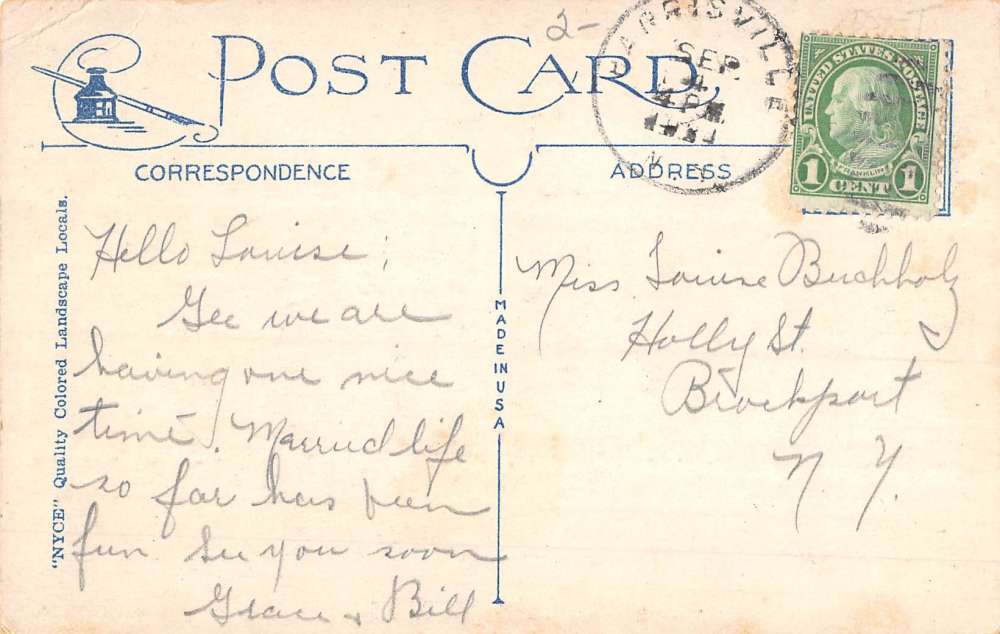 2-
POST CARD
HARRISVILLE
SEP.
4
4 PM
N.Y.
UNITED STATES POSTAGE
FRANKLIN
1 CENT 1
CORRESPONDENCE
ADDRESS
"NYCE" Quality Colored Landscape Locals.
MADE IN USA
Hello Louise;
Gee we are
having one nice
time. Married life
so far has been
fun. See you soon
Grace & Bill
Miss Louise Buchholz
Holly St.
Brockport
N Y.